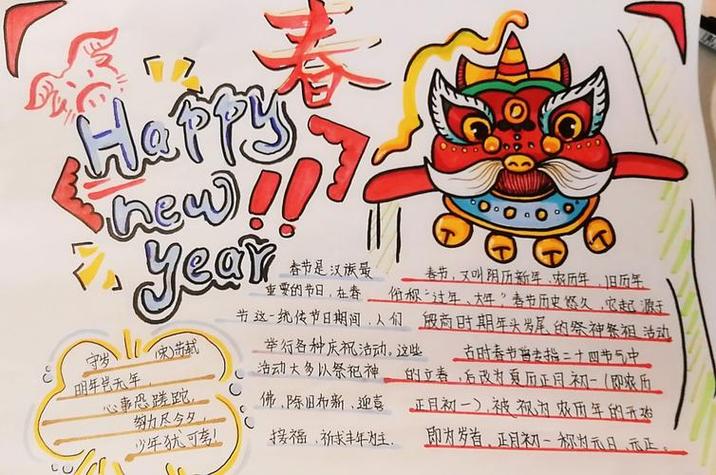 春
Happy
new
year
!!
春节是汉族最
重要的节日，在春
节这一统传节日期间，人们
举行各种庆祝活动。这些
活动大多以祭祀神
佛，除旧布新，迎喜
接福，祈求丰年为主.
春节，又叫阴历新年、农历年、旧历年
俗称“过年、大年”春节历史悠久，
殷商时期年头岁尾的祭神祭祖活动
古时春节曾专指二十四节气中
的立春，后改为夏历正月初一(即农历
正月初一)，被视为农历年的开始
即为岁首，正月初一称为元日、元正。
守岁 (宋)苏轼
明年岂无年，
心事恐蹉跎，
努力尽今夕，
少年犹可夸!